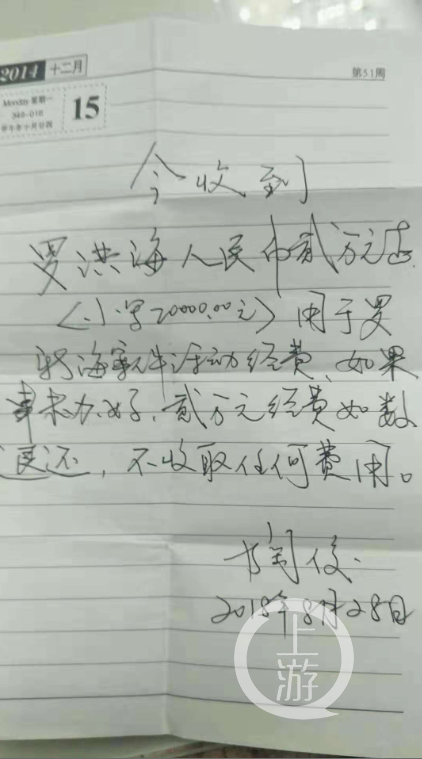 2014 十二月
第51周
Monday 星期一
15
今收到
罗洪海人民币贰万元正
(小写20000.00元)用于罗
海案件活动经费,如果
事未办好,贰万元经费如数
退还,不收取任何费用。
陶俊
2018年8月28日
上游